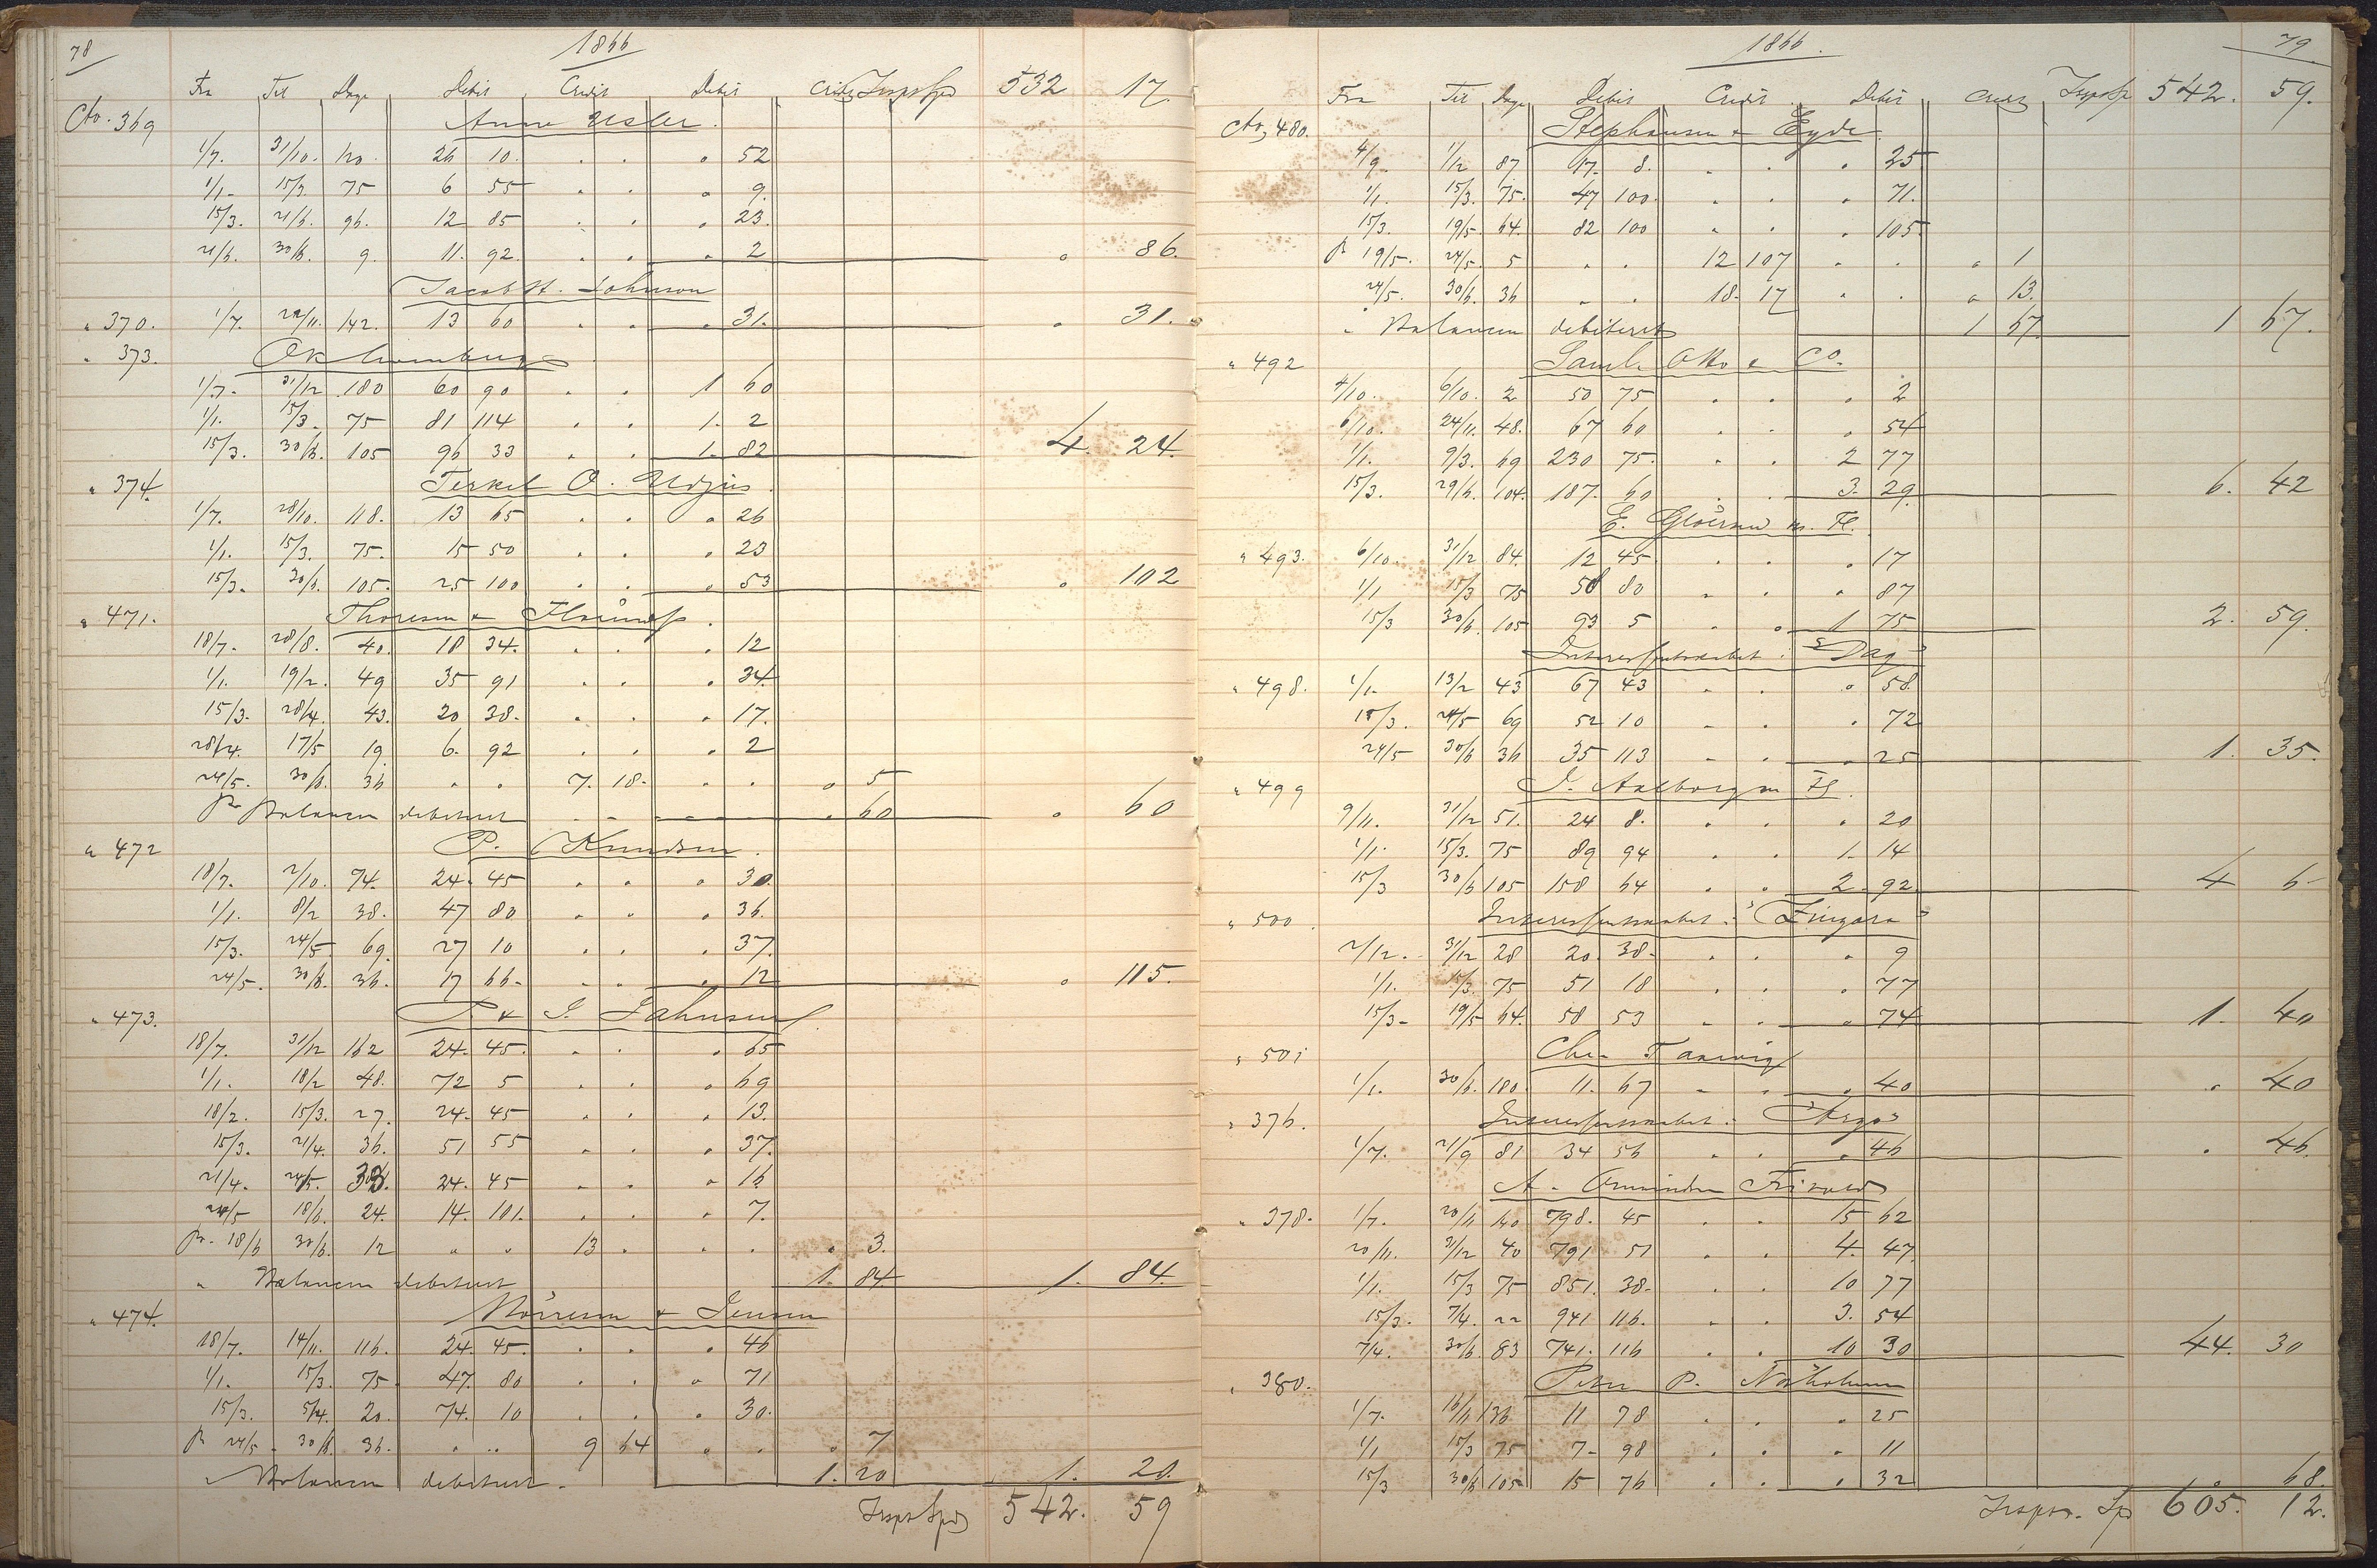 78
1866
Fra Til Dage Debit Credit Debit Credit Transp Spd 532 17.
Cto. 369 Anne Usler.
1/7. 31/10. 120. 26 10. . . " 52
1/1- 15/3. 75 6 55 . . " 9.
15/3. 21/6. 96. 12 85 . . " 23.
21/6. 30/6. 9. 11. 92. . . " 2 " 86.
Jacob H. Johnson
" 370. 1/7. 22/11. 142. 13 60 . . " 31. " 31.
" 373.
1/7. 31/12 180 60 90 . . 1 60
1/1. 15/3. 75 81 114 . . 1. 2
15/3. 30/6. 105 96 33 . . 1. 82 4. 24.
" 374. Terkel O. Udjus
1/7. 28/10. 118. 13 65 . . " 26
1/1. 15/3. 75. 15 50 . . " 23
15/3. 30/6. 105. 25 100 . . " 53 " 102
" 471. Thoresen &
18/7. 28/8. 40. 18 34. . . " 12
1/1. 19/2. 49 35 91 . . " 34.
15/3. 28/4. 43. 20 38. . . " 17.
28/4. 17/5 19 6. 92 . . " 2
24/5. 30/6. 36 " " 7. 18. . . " 5
pr Balancen debiteret " 60 " 60
" 472 P. Knudsen.
18/7. 2/10. 74. 24. 45 . . " 30.
1/1. 8/2 38. 47 80 . . " 36.
15/3. 24/5 69. 27 10 . . " 37.
24/5. 30/6. 36. 17 66. . . " 12 " 115.
" 473. P & J. Jahnsen
18/7. 31/12 162 24. 45. . . " 65
1/1. 18/2 48. 72 5 . . " 69
18/2. 15/3. 27. 24. 45 . . " 13.
15/3. 21/4. 36. 51 55 . . " 37.
21/4. 24/5. 33. 24. 45 . . " 16
24/5 18/6. 24. 14. 101. . . " 7.
pr. 18/6 30/6. 12 " " 13 . . . " 3.
" Balancen debiteret 1. 84. 1. 84.
" 474. Mörresen & Jensen
18/7. 14/11. 116. 24. 45. . . " 46
1/1. 15/3. 75. 47. 80 . . " 71
15/3. 5/4. 20. 74. 10 . . " 30.
pr 24/5. 30/6 36. " " 9 64 . . " 7
" Balancen debiteret. 1. 20 1. 20.
Transp Spd 542. 59
79.
1866.
Fra Til Dage Debit Credit Debit Credit Transp Sp 542. 59.
Cto, 480. Stephansen & Eyde
4/9. 1/12 87 17. 8. . . " 25
1/1. 15/3. 75. 47 100. . . " 71.
15/3. 19/5. 64. 82 100 . . " 105.
pr 19/5. 24/5. 5 " . 12 107 . . " 1
24/5. 30/6. 36 " . 18. 17 . . " 13.
" Balancen debiteret 1 67. 1 67.
" 492 Saml. Otto & Co.
4/10. 6/10. 2 50 75 . . " 2
6/10. 24/11. 48. 67 60 . . " 54
1/1. 9/3. 69 230 75. . . 2 77
15/3. 29/6. 104. 187. 60 . . 3. 29. 6. 42
E. m. Fl.
" 493. 6/10. 31/12 84. 12 45. . . " 17
1/1 15/3 75 58 80 . . " 87
15/3 30/6. 105 93 5 . . 1 75 2. 59.
Interessentskabet: "Dag"
" 498. 1/1. 13/2 43 67 43 . . " 58.
15/3. 24/5 69 52 10 . . " 72
24/5 30/6 36 35 113 . . " 25 1. 35.
" 499 J. Aalborg m Fl.
9/11. 31/12 51. 24 8. . . " 20
1/1. 15/3. 75 89 94 . . 1. 14
15/3 30/6 105 158 64 . . 2. 92. 4 6
" 500. Interessentskabet: "Zingara"
2/12. 31/12 28 20. 38. . . " 9
1/1. 15/3. 75 51 18 . . " 77
15/3. 19/5 64. 58 53 . . " 74 1. 40
" 501 Chr.
1/1. 30/6. 180. 11. 67 . . " 40 " 40
" 376. Interessentskabet: "Argo"
1/7. 21/9 81 34 56 . . " 46 " 46.
A.
" 378. 1/7. 20/11 140 798. 45 . . 15 62
20/11. 31/12 40 791 51 . . 4. 47.
1/1. 15/3 75 851. 38. . . 10 77
15/3. 7/4. 22 941 116. . . 3. 54
7/4. 30/6. 83 741. 116 . . 10 30 44. 30
" 380. Peter P.
1/7. 16/11 136 11 78 . . " 25
1/1 15/3 75 7. 98 . . " 11
15/3 30/6 105 15 76 . . " 32 " 68.
Transp. Sp 605. 12.